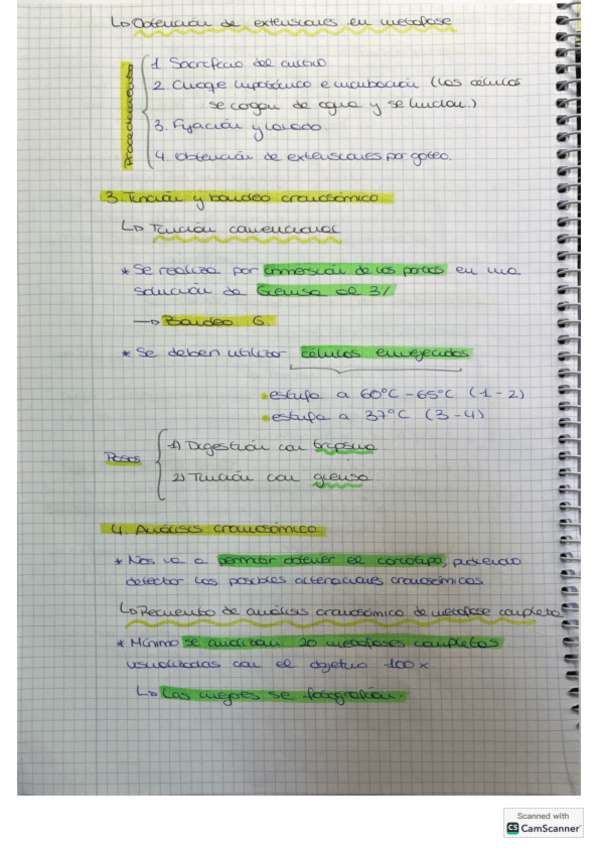 ↳ Obtención de extensiones en metafase
Procedimiento
1. Sacrificio del cultivo
2. Choque hipotónico e incubación (Las células
se cargan de agua y se hinchan.)
3. Fijación y lavado.
4. Obtención de extensiones por goteo.
3. Tinción y bandeo cromosómico
↳ Tinción convencional
* Se realiza por inmersión de los portas en una
solución de Giemsa al 3%
→ Bandeo G
* Se deben utilizar células envejecidas
• estufa a 60ºC - 65ºC (1-2)
• estufa a 37ºC (3-4)
Pasos
1) Digestión con tripsina
2) Tinción con giemsa
4. Análisis cromosómico
* Nos va a permitir obtener el cariotipo, pudiendo
detectar las posibles alteraciones cromosómicas
↳ Recuento de análisis cromosómico de metafase completa
* Mínimo se analizan 20 metafases completas
visualizadas con el objetivo 100x
↳ Las mejores se fotografían.
Scanned with
CS CamScanner